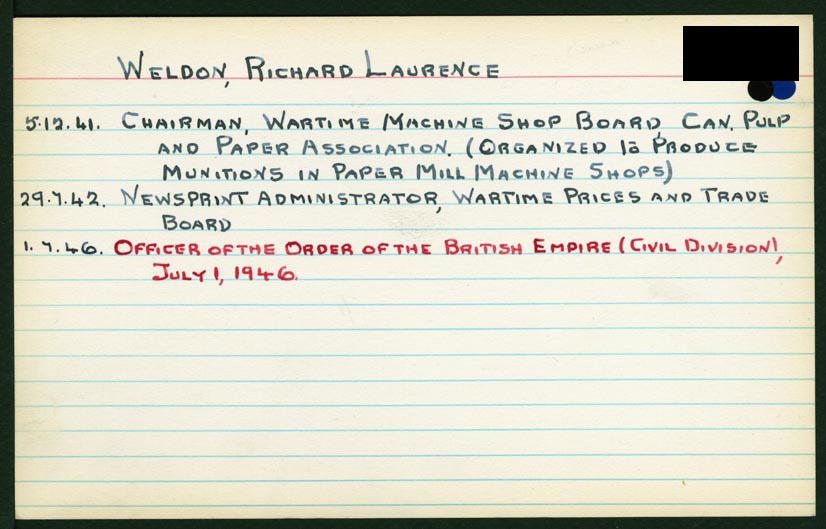 WELDON, RICHARD LAURENCE
5.12.41. CHAIRMAN, WARTIME MACHINE SHOP BOARD, CAN. PULP
AND PAPER ASSOCIATION. (ORGANIZED TO PRODUCE
MUNITIONS IN PAPER MILL MACHINE SHOPS)
29.7.42. NEWSPRINT ADMINISTRATOR, WARTIME PRICES AND TRADE
BOARD
1.7.46. OFFICER OF THE ORDER OF THE BRITISH EMPIRE (CIVIL DIVISION),
JULY 1, 1946.